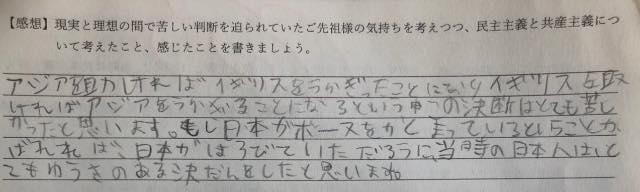 【感想】現実と理想の間で苦しい判断を迫られていたご先祖様の気持ちを考えつつ、民主主義と共産主義につ
いて考えたこと、感じたことを書きましょう。
アジアを助ければイギリスをうらぎったことになりイギリスを取
ければアジアをうらぎることになるという中での決断はとても苦し
かったと思います。もし日本がボースをかくまっているということが
ばれれば、日本がほろびていただろうに、当時の日本人は、と
てもゆうきのある決だんをしたと思いますね